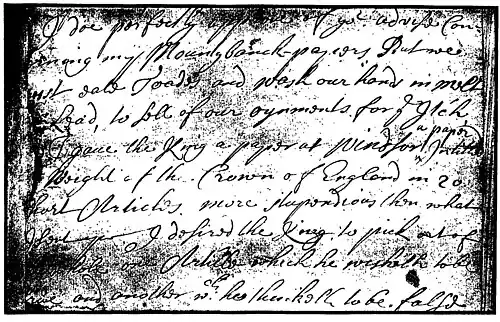 I doe perfectly approve of yͤ advise Con-
cerning my Mountybanck-papers, But wee
must eate Toades, and wash our hands in melt
Lead, to sell of our oyntments for yͤ Itch
I gave the King a paper at Windsor, a paper Intitled
Weight of the Crown of England in 20
short Articles, more stupendious then what
I sent I desired the King to pick out of
one Article which he wisheth to be
true and another wͨͪ he thinketh to be false